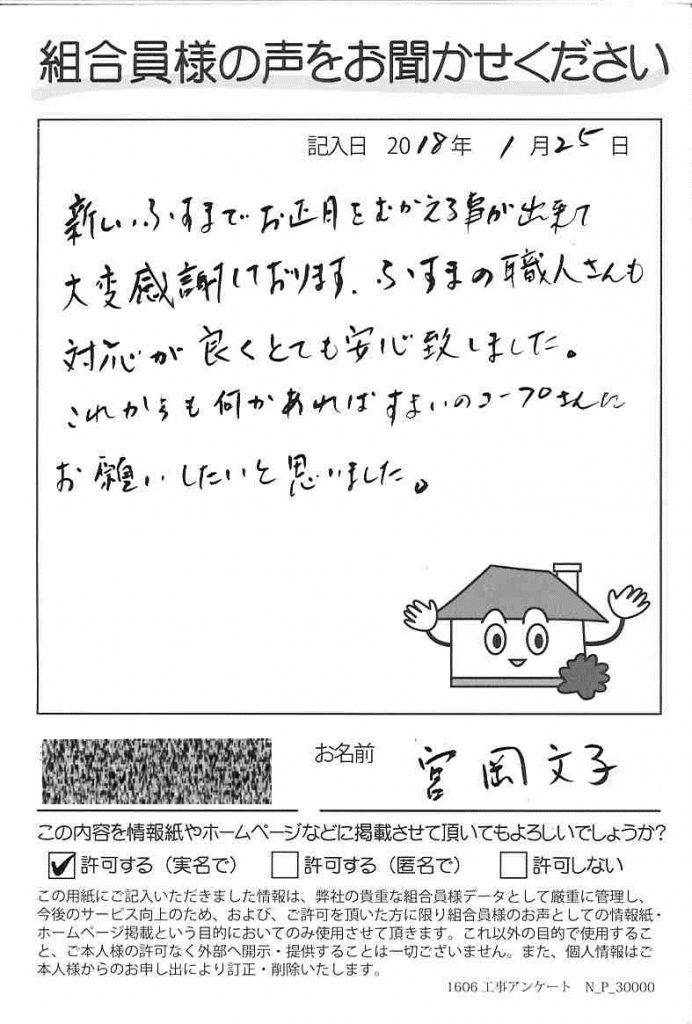 組合員様の声をお聞かせください
記入日 2018年 1月25日
新しいふすまでお正月をむかえる事が出来て
大変感謝しております。ふすまの職人さんも
対応が良くとても安心致しました。
これからも何かあればすまいのコープさんに
お願いしたいと思いました。
お名前 宮岡文子
この内容を情報紙やホームページなどに掲載させて頂いてもよろしいでしょうか?
許可する（実名で） 許可する（匿名で） 許可しない
この用紙にご記入いただきました情報は、弊社の貴重な組合員様データとして厳重に管理し、
今後のサービス向上のため、および、ご許可を頂いた方に限り組合員様のお声としての情報紙・
ホームページ掲載という目的においてのみ使用させて頂きます。これ以外の目的で使用するこ
と、ご本人様の許可なく外部へ開示・提供することは一切ございません。また、個人情報はご
本人様からのお申し出により訂正・削除いたします。
1606 工事アンケート N_P_30000